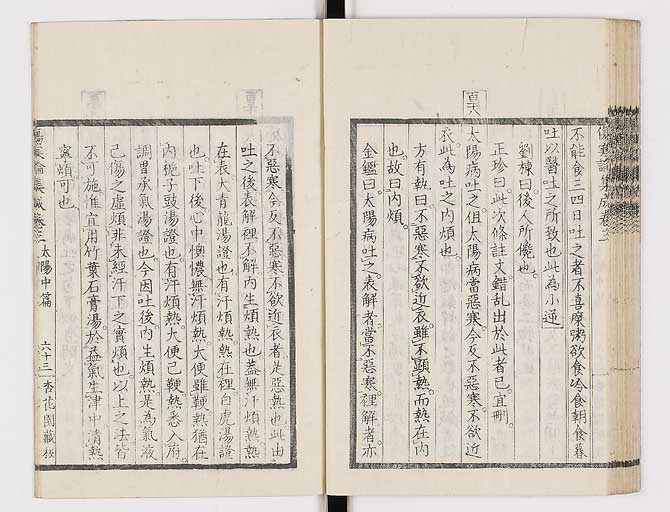 不能食三四日吐之者不喜糜粥欲食冷食朝食暮
吐以醫吐之所致也此為小逆
劉棟曰後人所攙也
正珍曰此次條註文錯乱出於此者已宜刪
太陽病吐之但太陽病當惡寒今反不惡寒不欲近
衣此為吐之內煩也
方有執曰不惡寒不欲近衣雖不顯熱而熱在內
也故曰內煩
金鑑曰太陽病吐之表解者當不惡寒裡解者亦
不惡寒今反不惡寒不欲近衣者是惡熱也此由
吐之後表解裡不解內生煩熱也蓋無汗煩熱熱
在表大青龍湯證也有汗煩熱熱在裡白虎湯證
也吐下後心中懊憹無汗煩熱大便雖鞕熱猶在
內梔子豉湯證也有汗煩熱大便已鞕熱悉入府
調胃承氣湯證也今因吐後內生煩熱是為氣液
已傷之虛煩非未經汗下之實煩也以上之法皆
不可施惟宜用竹葉石膏湯於益氣生津中清熱
寧煩可也
傷寒論集成卷之二 太陽中篇 六十三 杏花園藏板